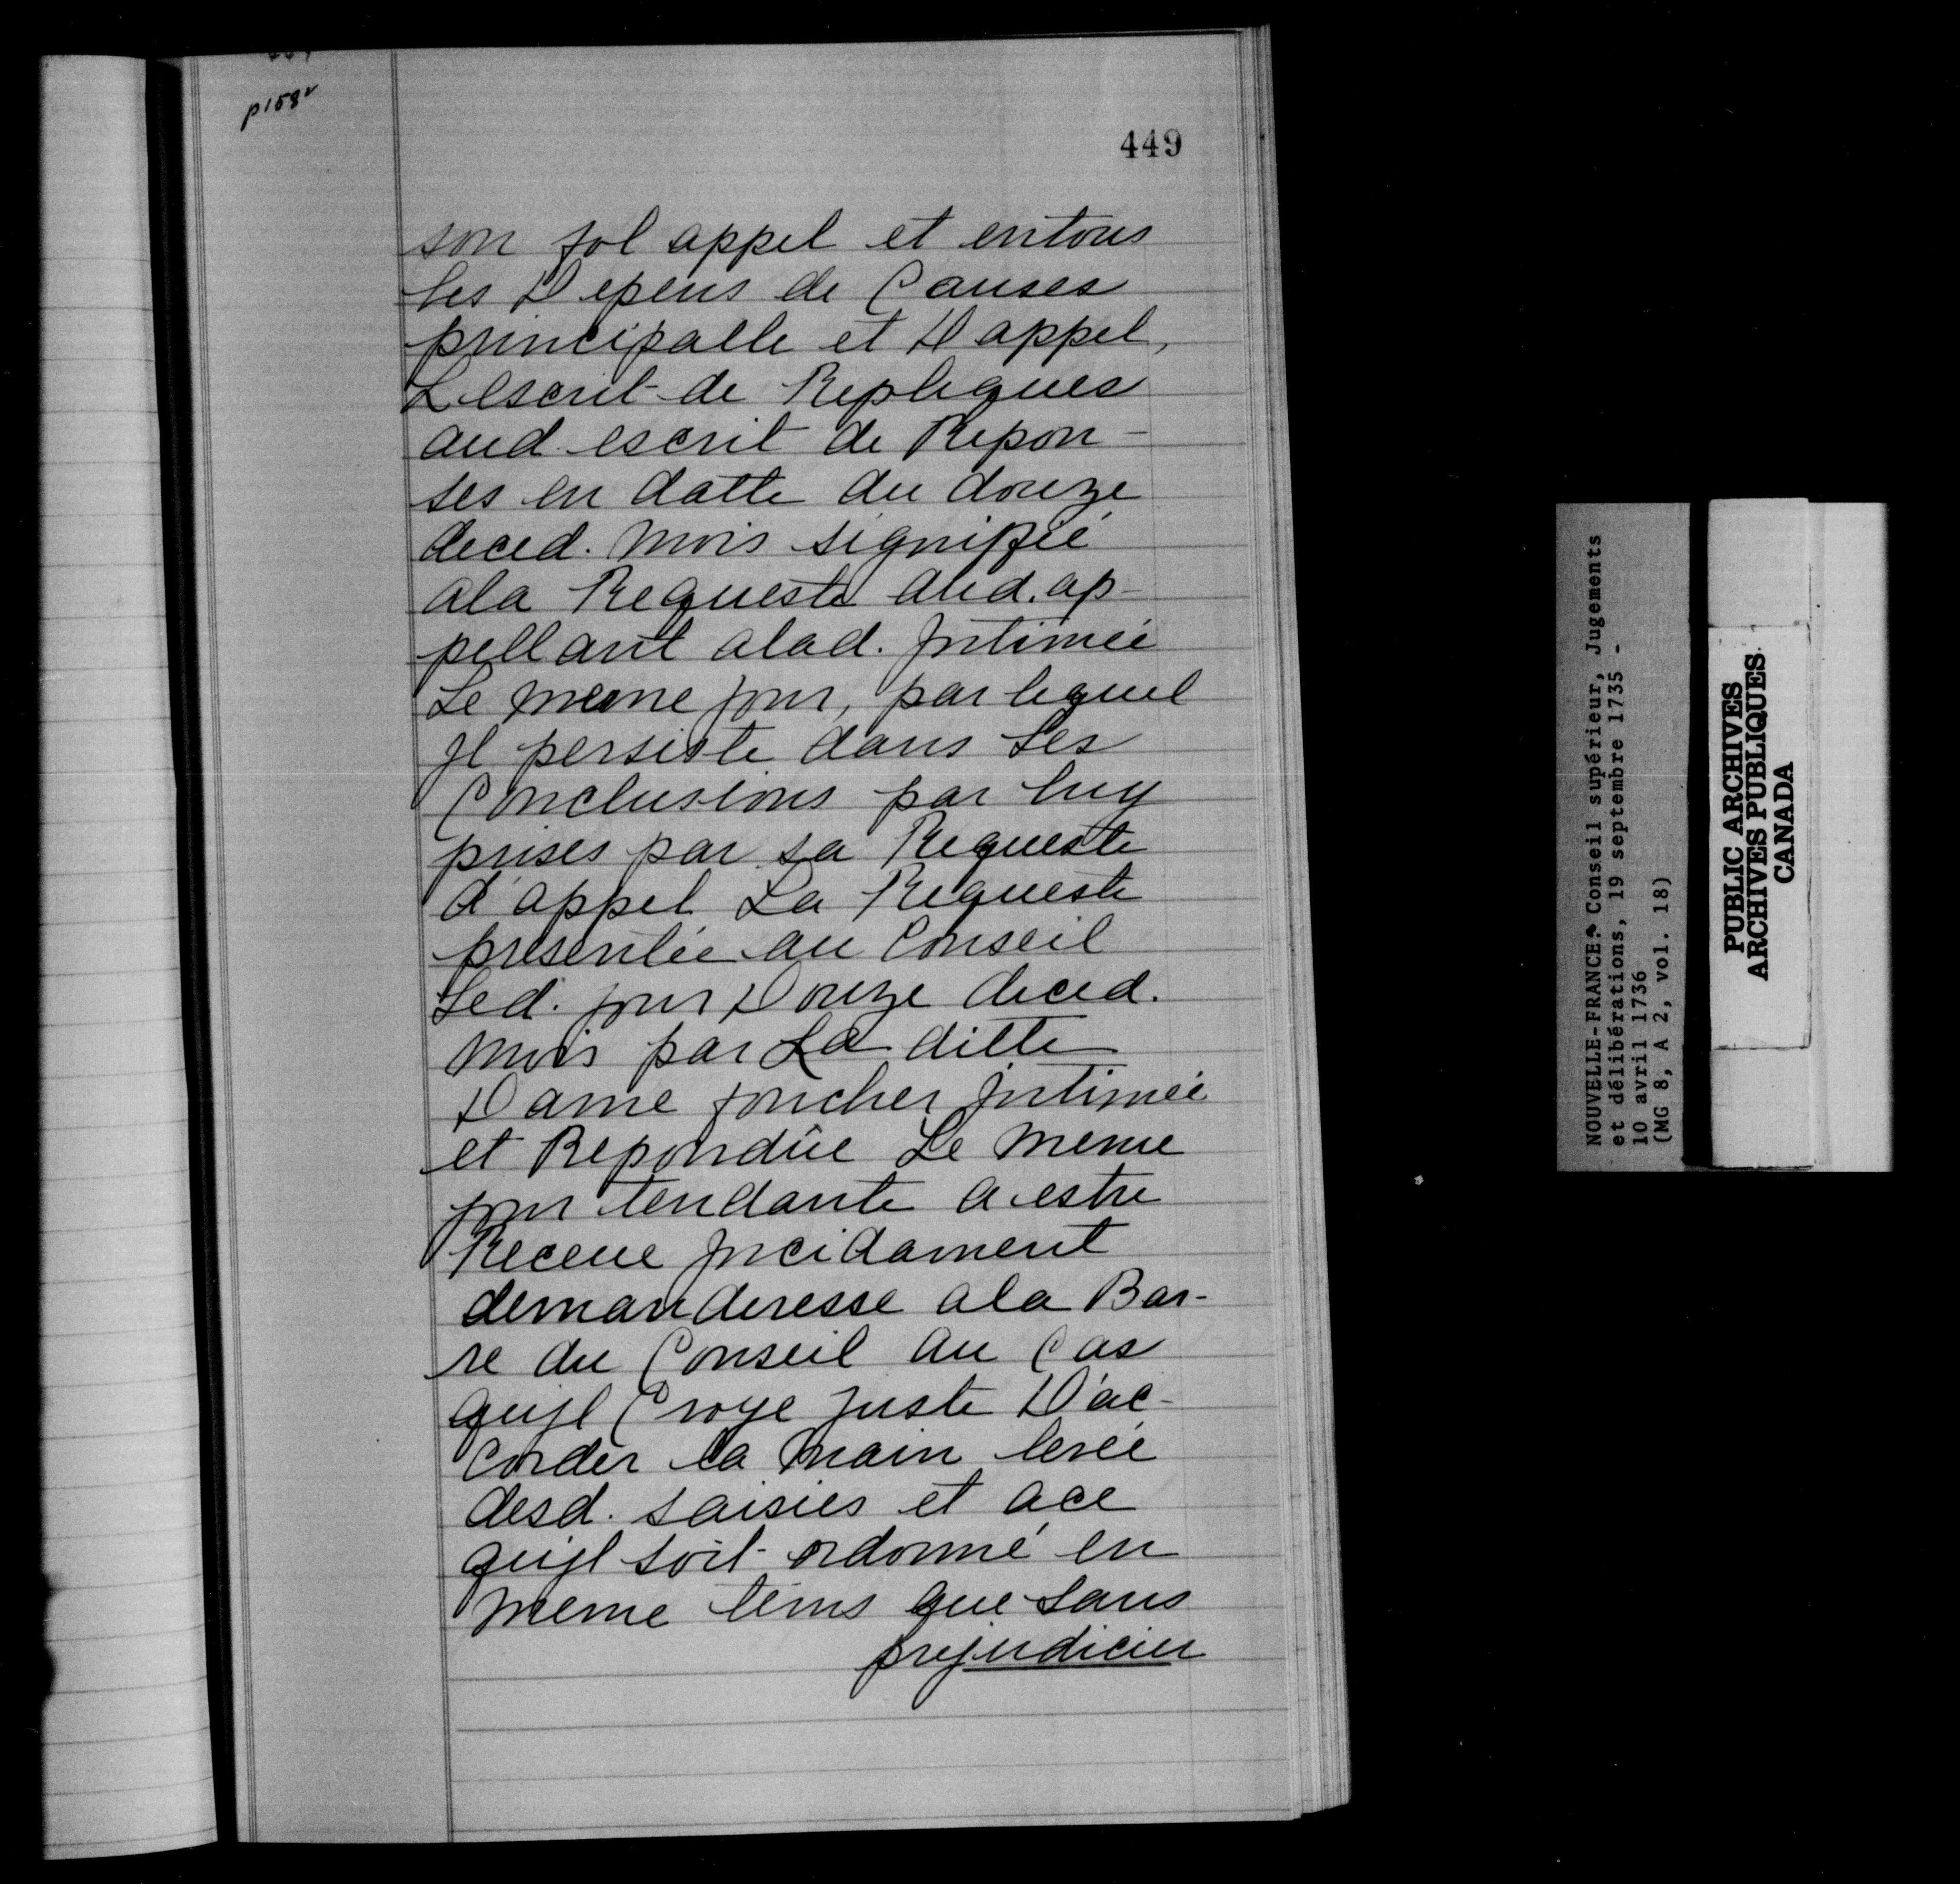 p158v
449
son fol appel et entous
les Depens de Causes
principalle et Dappel,
Lescrit de Repliques
aud. escrit de Repon-
ses en datte du douze
deced. mois signifié
ala Requeste dud. ap-
pellant alad. Jntimée
Le meme jour, par lequel
Jl persiste dans Ses
Conclusions par luy
prises par sa Requeste
d'appel La Requeste
presentée au Conseil
Led. jour Douze deced.
mois par La ditte
Dame foucher Jntimée
et Repondüe Le meme
jour tendante a estre
Receue Jncidament
demanderesse ala Bar-
re du Conseil au Cas
quJl Croye juste D'ac-
corder la main levée
desd. saisies et ace
quJl soit ordonné en
meme tems que Sans
prejudicier
NOUVELLE-FRANCE: Conseil supérieur, Jugements
et délibérations, 19 septembre 1735 -
10 avril 1736
(MG 8, A 2, vol. 18)
PUBLIC ARCHIVES
ARCHIVES PUBLIQUES
CANADA